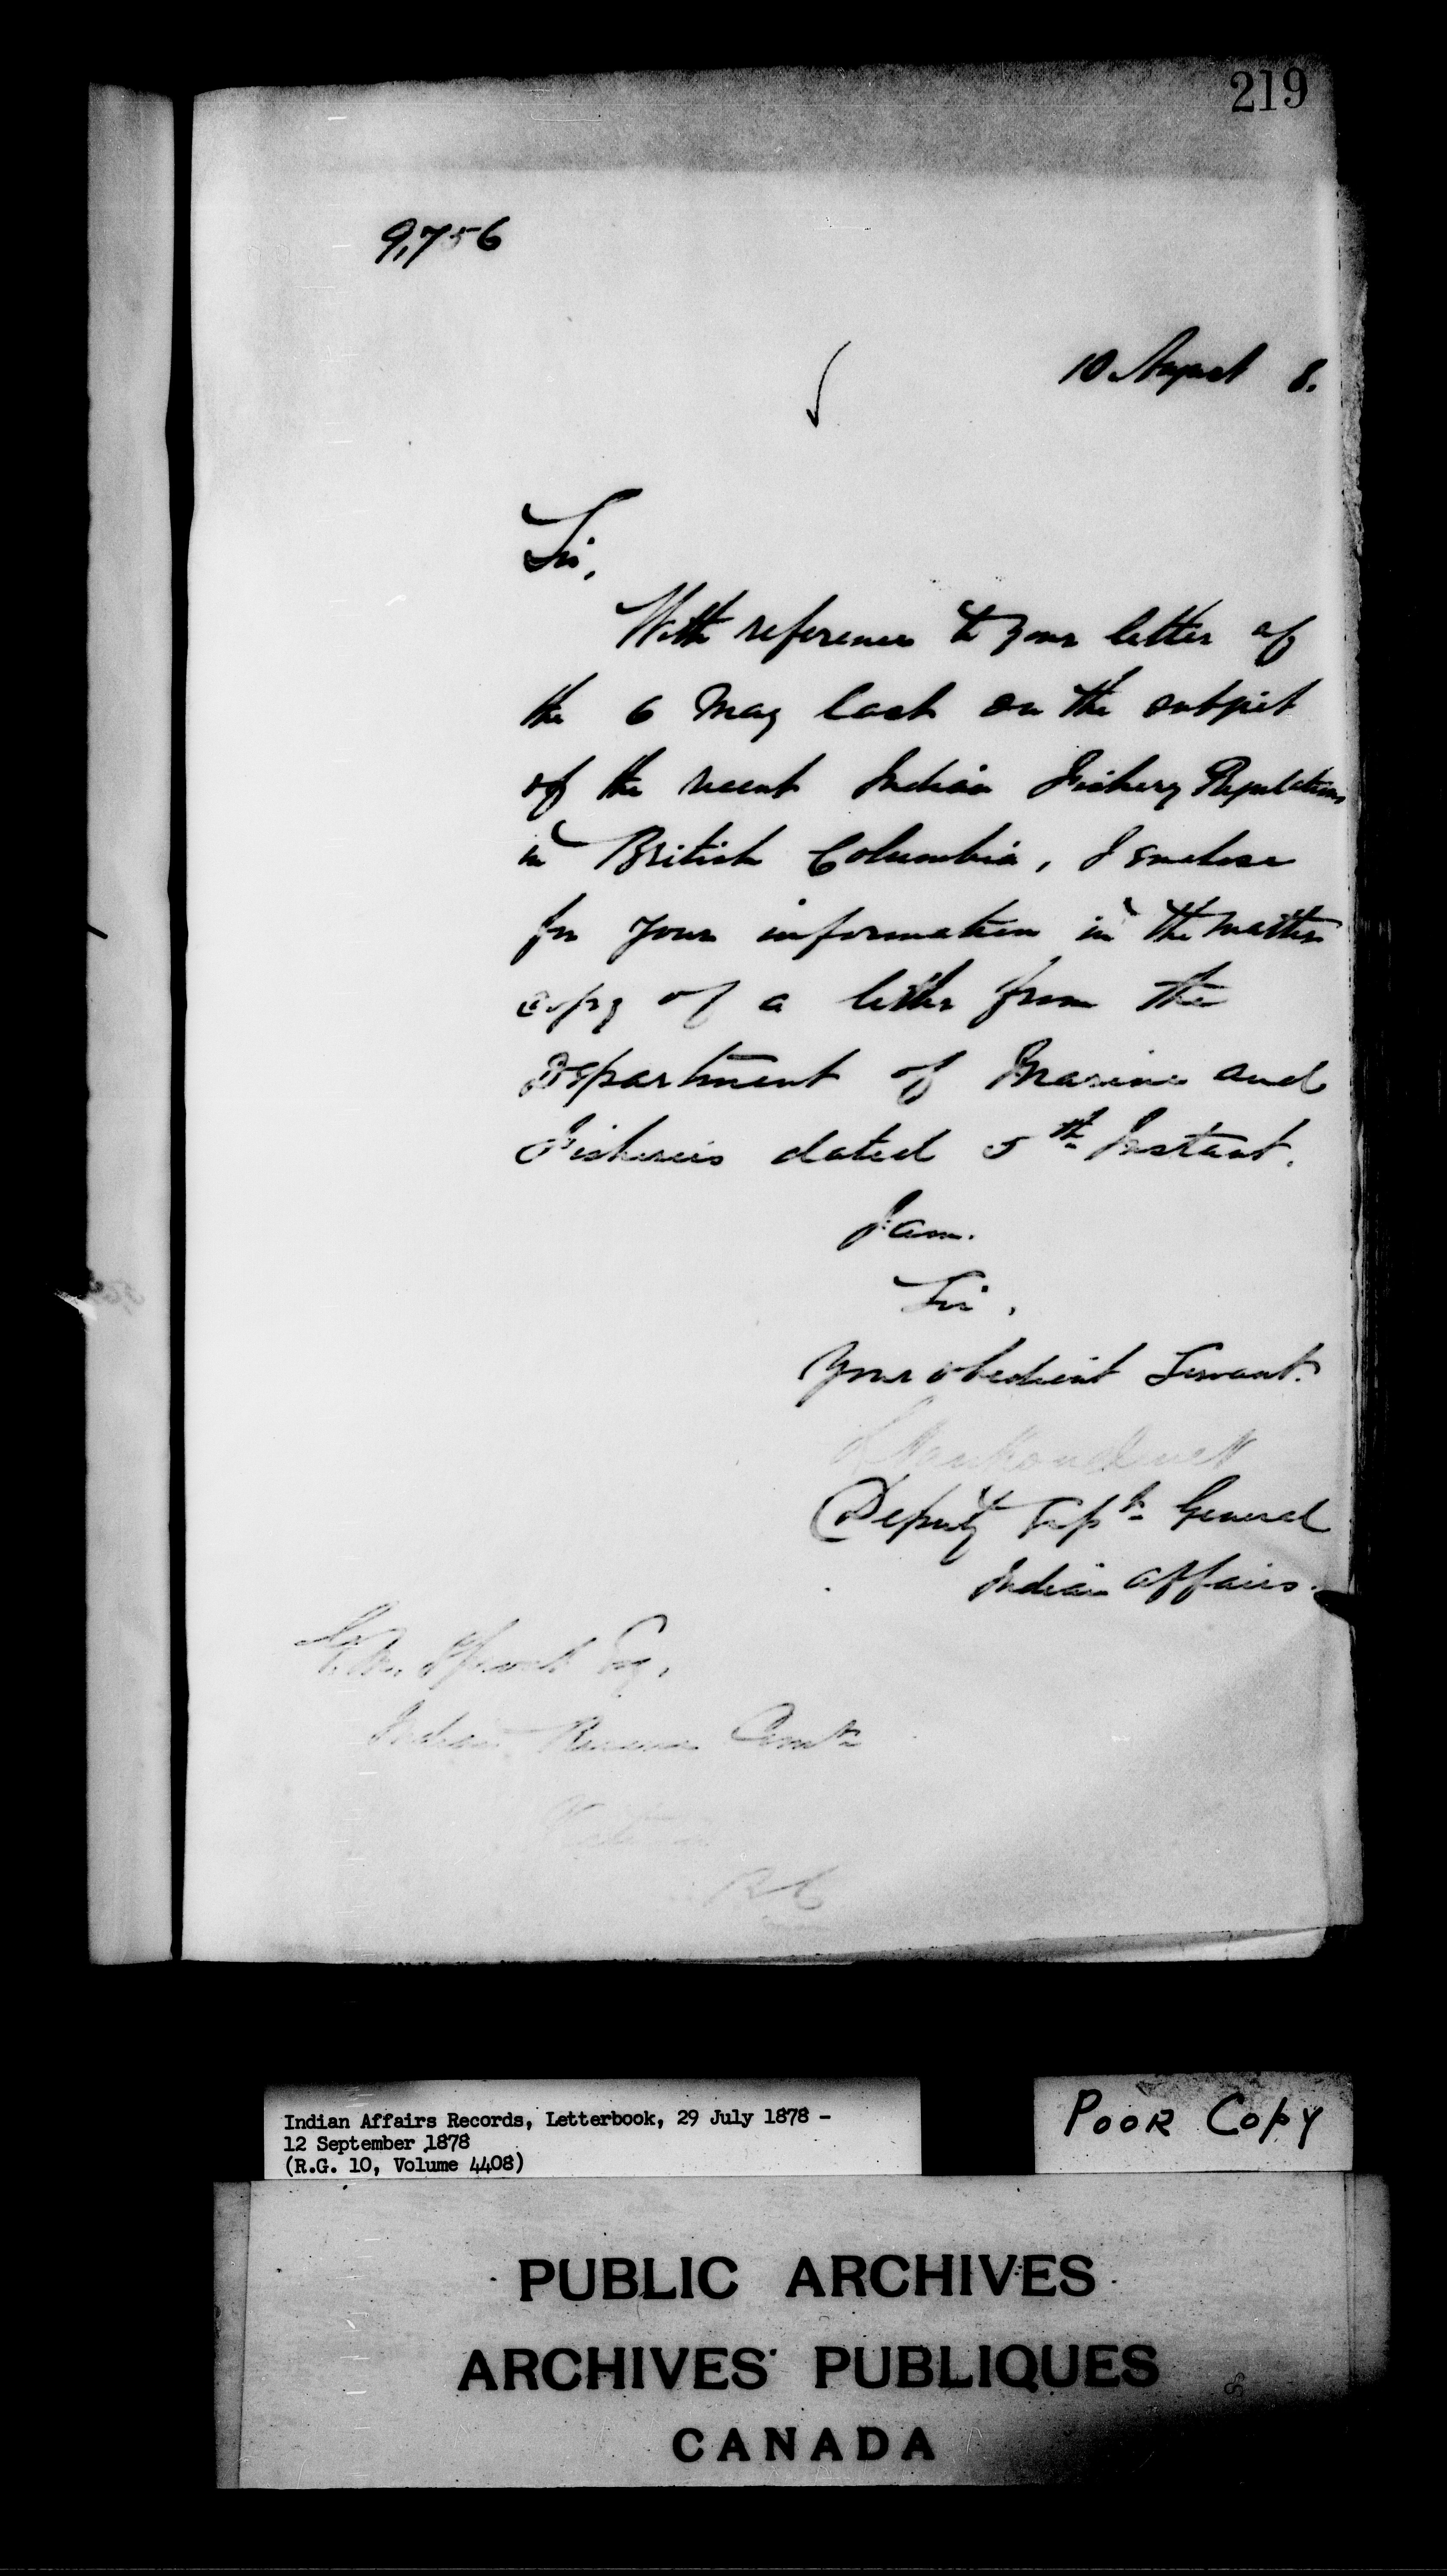 219
9,756
10 August 8.
Sir,
With reference to your letter of
the 6 May last on the subject
of the recent Indian Fishery Regulations
in British Columbia, I enclose
for your information in the matter
copy of a letter from the
Department of Marine and
Fisheries dated 5th Instant.
I am.
Sir,
Your obedient Servant.
L Vankoughnet
Deputy Supt General
Indian Affairs.
G. M. Sproat Esq,
Indian Reserve Comr
Victoria
B C
Indian Affairs Records, Letterbook, 29 July 1878 -
12 September 1878
(R.G. 10, Volume 4408)
POOR COPY
PUBLIC ARCHIVES
ARCHIVES PUBLIQUES
CANADA